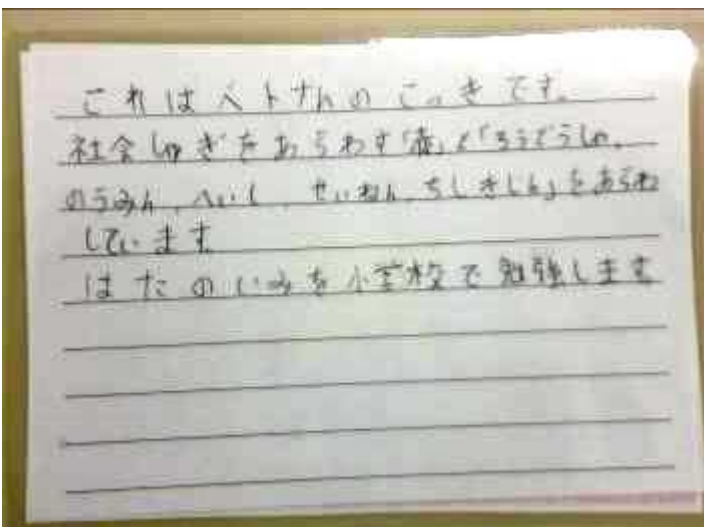 これはベトナムのこっきです。
社会しゅぎをあらわす「赤」と「ろうどうしゃ、
のうみん、へいし、せいねん、ちしきじん」をあらわ
しています
はたのいみを小学校で勉強します